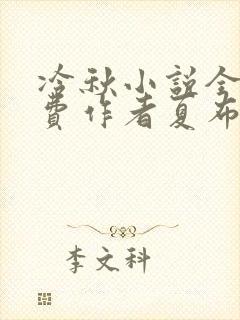 冷秋小说全
费作者夏布
李文科